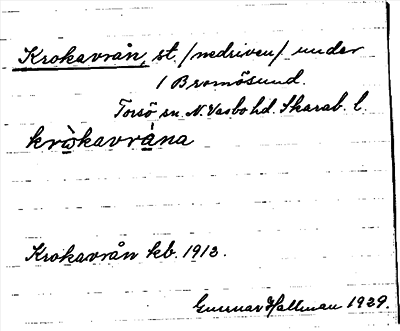 Krokavrån, st. /nedriven/ under
1 Bromösund.
Torsö sn. N. Vadsbo hd. Skarab. l.
kròkavråna
Krokavrån kb. 1913.
Gunnar Hallman 1929.